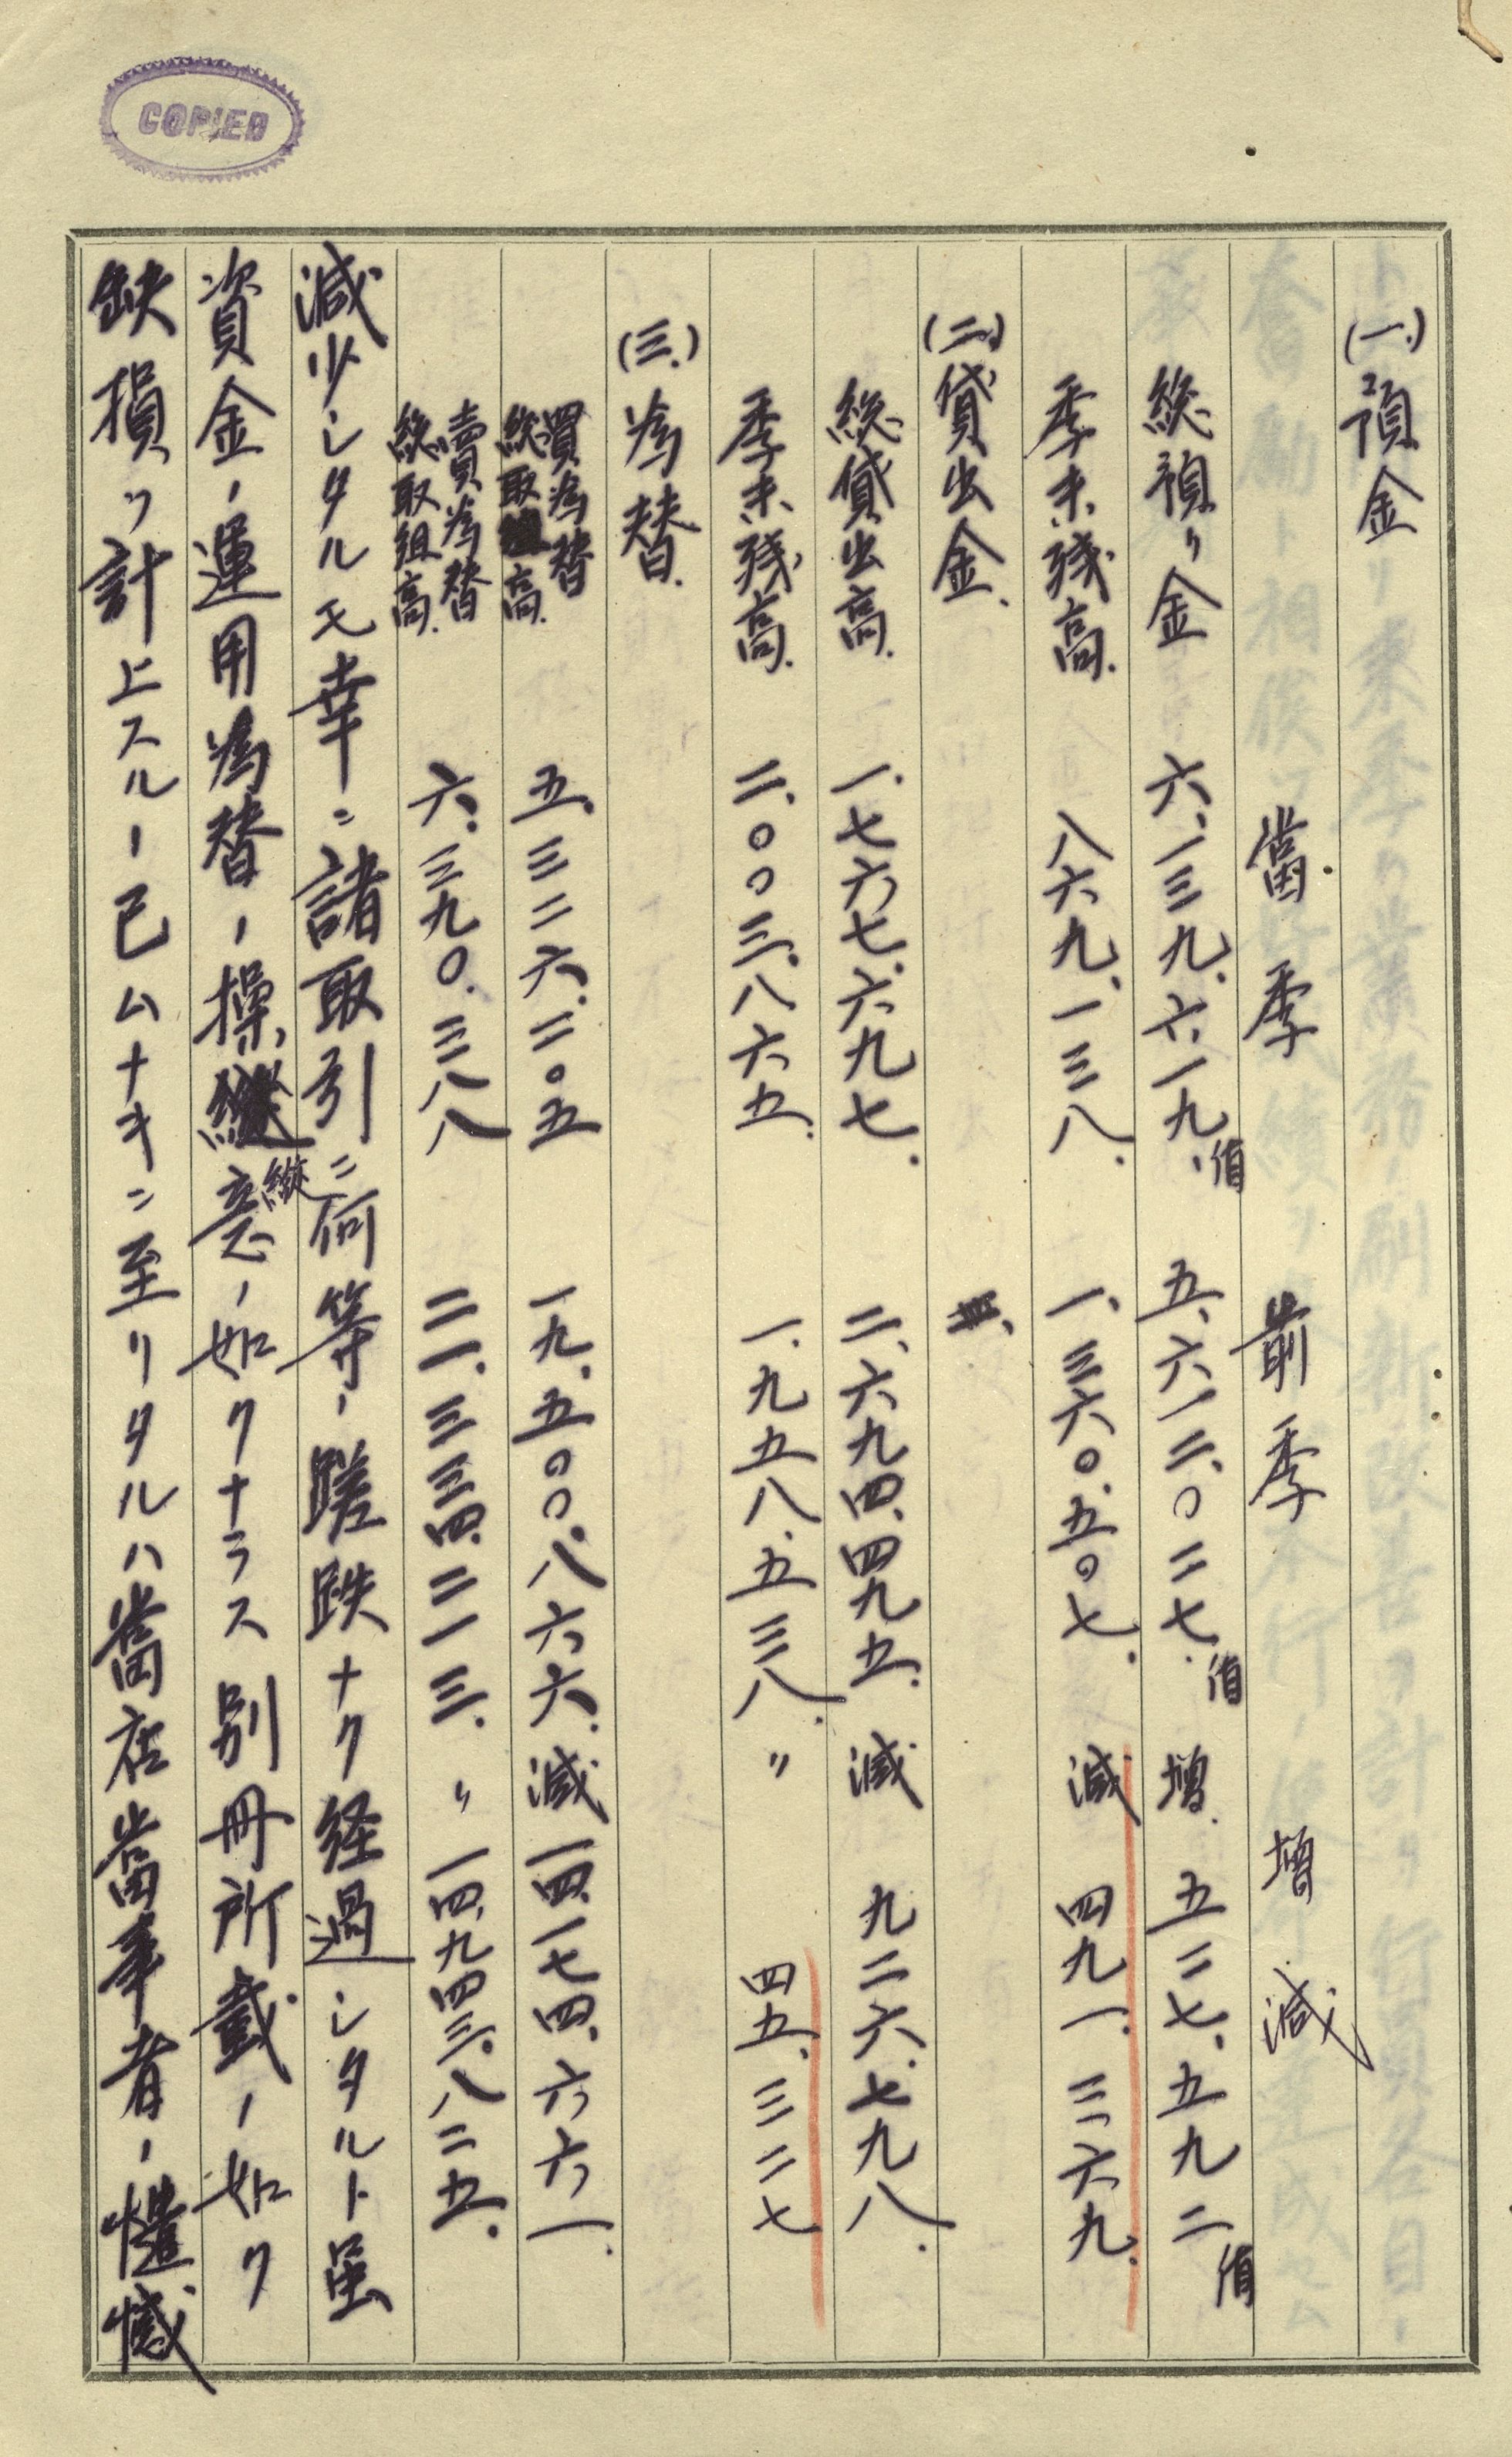 COPIED
(一)預金
當季 前季 增減
総預リ金 六、一三九、六一九、佰 五、六一二、〇二七、佰 增 五二七、五九二佰
季末残高. 八六九、一三八. 一、三六〇、五〇七. 減 四九一、三六九.
(二)貸出金、
総貸出高. 一、七六七、六九七. 二、六九四、四九五. 減 九二六、七九八.
季末残高. 二、〇〇三、八六五. 一、九五八、五三八. 〃 四五、三二七
(三)為替.
買為替総取組高. 五、三二六、二〇五 一九、五〇〇、八六六. 減 一四、一七四、六六一.
賣為替総取組高. 六、三九〇、三八八 二一、三三四、二一三. 〃 一四、九四三、八二五.
減少シタルモ幸ニ諸取引ニ何等ノ蹉跌ナク経過シタルト虽
資金ノ運用為替ノ操縦意ノ如クナラス別冊所載ノ如ク
缺損ヲ計上スルノ已ムナキニ至リタルハ當店當事者ノ遺憾